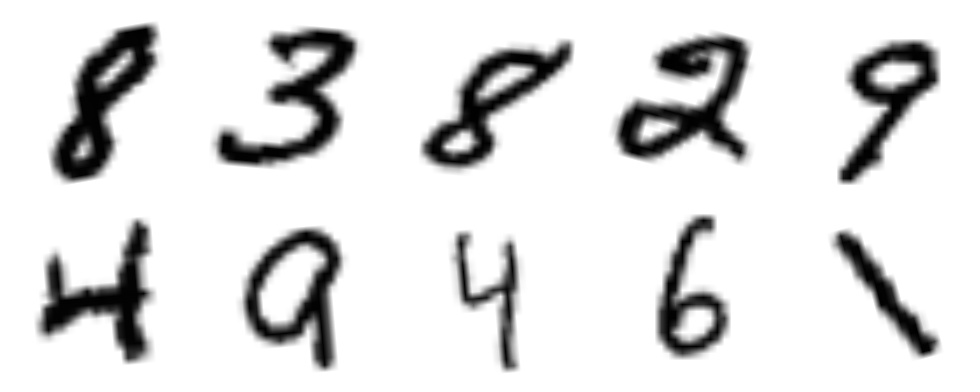 8 3 8 2 9
4 9 4 6 1